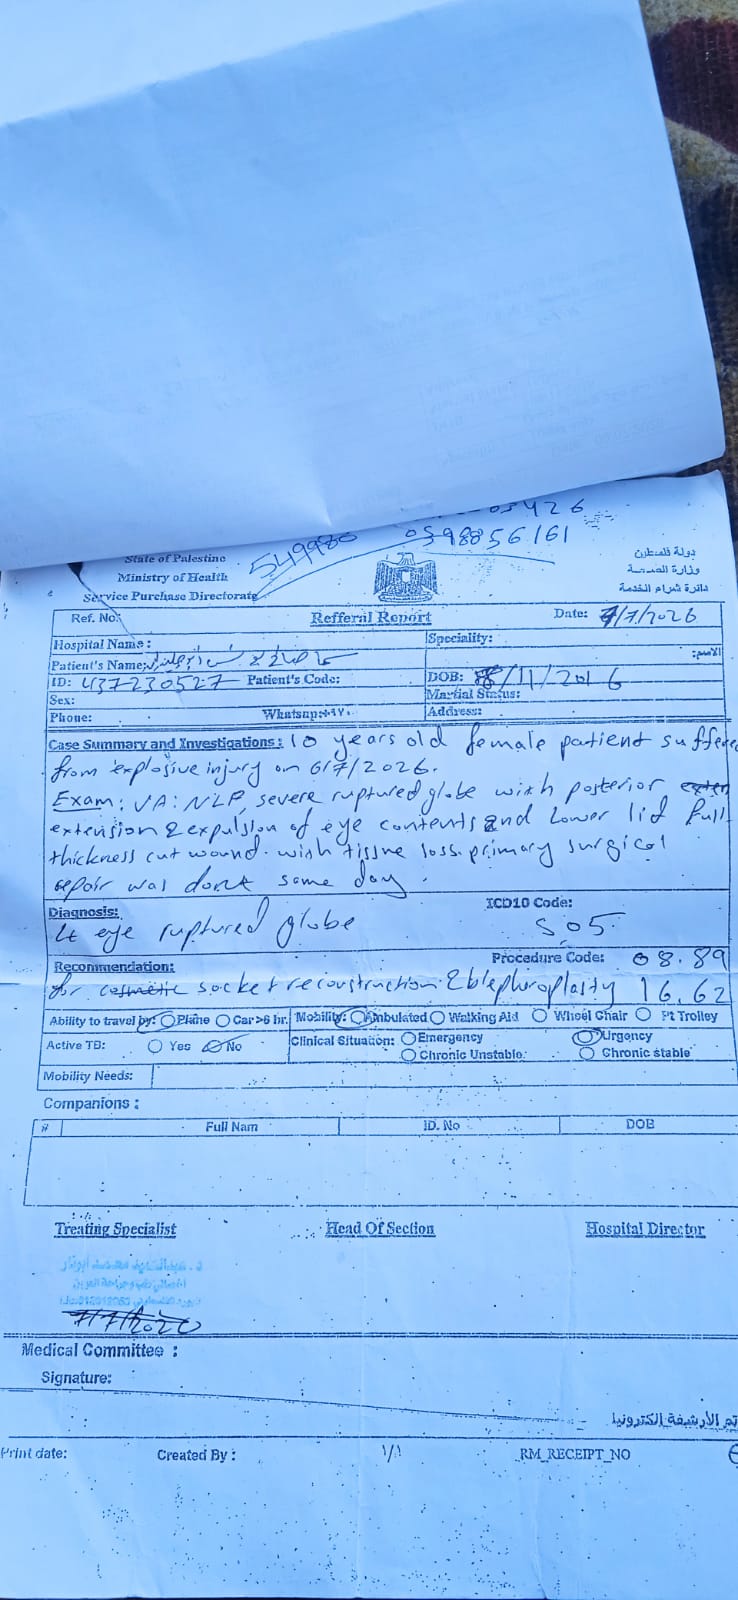 03426
549980 0598856161
State of Palestine
دولة فلسطين
Ministry of Health
وزارة الصحة
Service Purchase Directorate
دائرة شراء الخدمة
Ref. No:
Refferal Report
Date: 7/7/2026
Hospital Name :
Speciality:
Patient's Name:
الاسم:
ID: 437230527 Patient's Code:
DOB: 8/11/2016
Sex:
Martial Status:
Phone:
Address:
Case Summary and Investigations : 10 years old female patient suffered
from explosive injury on 6/7/2026.
Exam: VA: NLP, severe ruptured globe with posterior
extension & expulsion of eye contents and Lower lid full
thickness cut wound. with tissue loss. primary surgical
repair was done same day.
Diagnosis:
ICD10 Code:
Lt eye ruptured globe
S05
Procedure Code: 08.89
Recommendation:
for cosmetic socket reconstruction & blepharoplasty 16.62
Ability to travel by: Plane Car>6 hr. Mobility: Ambulated Walking Aid Wheel Chair Pt Trolley
Active TB: Yes No Clinical Situation: Emergency Urgency
Chronic Unstable Chronic stable
Mobility Needs:
Companions :
# Full Nam ID. No DOB
Treating Specialist Head Of Section Hospital Director
7/7/2026
Medical Committee :
Signature:
تم الأرشفة الكترونيا
Print date: Created By : 1/1 RM_RECEIPT_NO